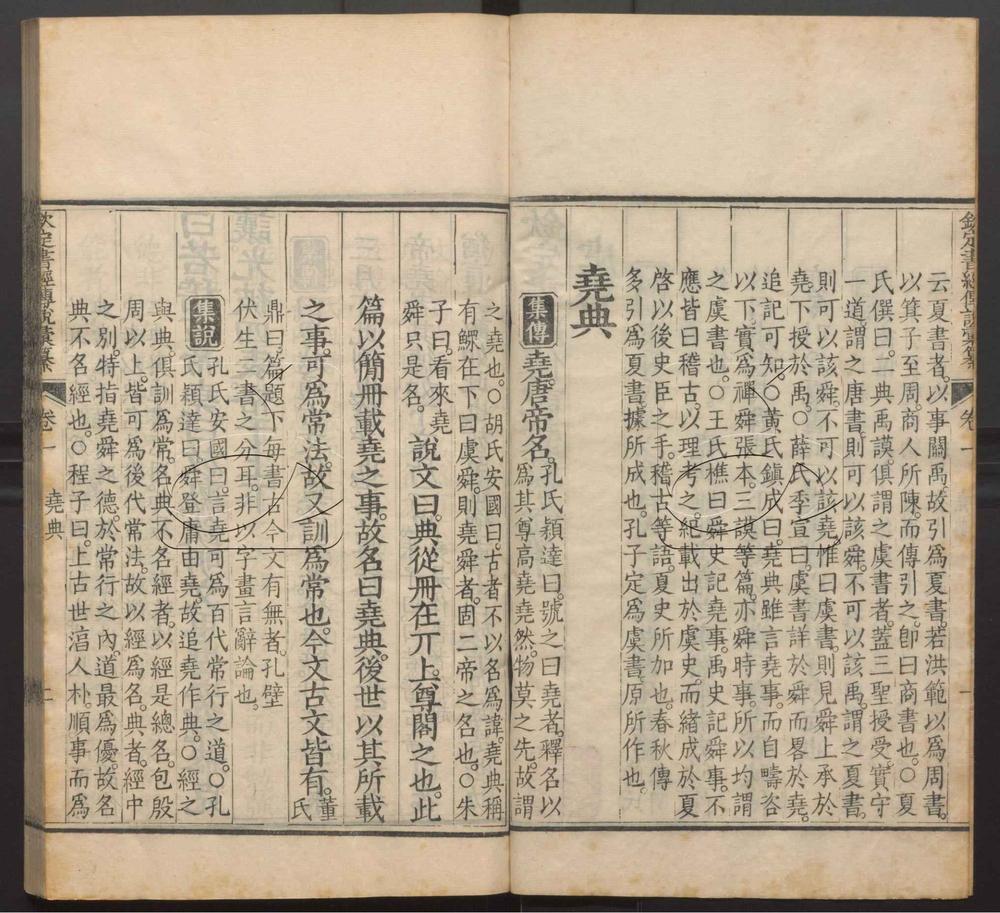 云夏書者以事關禹故引爲夏書若洪範以爲周書。
以箕子至周商人所陳而傳引之卽曰商書也。〇夏
氏僎曰二典禹謨俱謂之虞書者蓋三聖授受實守
一道謂之唐書則可以該舜不可以該禹謂之夏書。
則可以該舜不可以該堯惟曰虞書則見舜上承於
堯下授於禹。〇薛氏季宣曰虞書詳於舜而畧於堯。
追記可知。〇黃氏鎭成曰堯典雖言堯事而自疇咨
以下實爲禪舜張本三謨等篇亦舜時事所以均謂
之虞書也。〇王氏樵曰舜史記堯事禹史記舜事不
應皆曰稽古以理考之紀載出於虞史而緒成於夏
啓以後史臣之手稽古等語夏史所加也春秋傳
多引爲夏書據所成也孔子定爲虞書原所作也。
堯典
集傳 堯唐帝名。孔氏穎達曰號之曰堯者釋名以
爲其尊高堯堯然物莫之先故謂
之堯也。〇胡氏安國曰古者不以名爲諱堯典稱
有鰥在下曰虞舜則堯舜者固二帝之名也。〇朱
子曰看來堯
舜只是名。 說文曰典從冊在丌上尊閣之也此
篇以簡冊載堯之事故名曰堯典後世以其所載
之事可爲常法故又訓爲常也今文古文皆有。董氏
鼎曰篇題下每書古今文有無者孔壁
伏生二書之分耳非以字畫言辭論也。
集說 孔氏安國曰言堯可爲百代常行之道。〇孔
氏穎達曰舜登庸由堯故追堯作典。〇經之
與典俱訓爲常名典不名經者以經是總名包殷
周以上皆可爲後代常法故以經爲名典者經中
之別特指堯舜之德於常行之內道最爲優故名
典不名經也。〇程子曰上古世淳人朴順事而爲
欽定書經傳說彙纂
卷一
一
欽定書經傳說彙纂
卷一
堯典
二